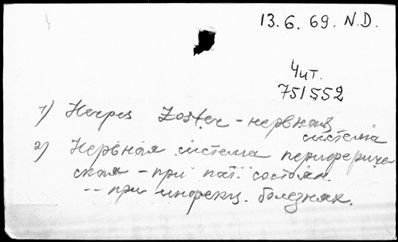 13.6.69. N.D.
Чит.
751552
1) Herpes Zoster - нервная
система
2) Нервная система перифериче
ская - при пат. состоян.
-- при инфекц. болезнях.